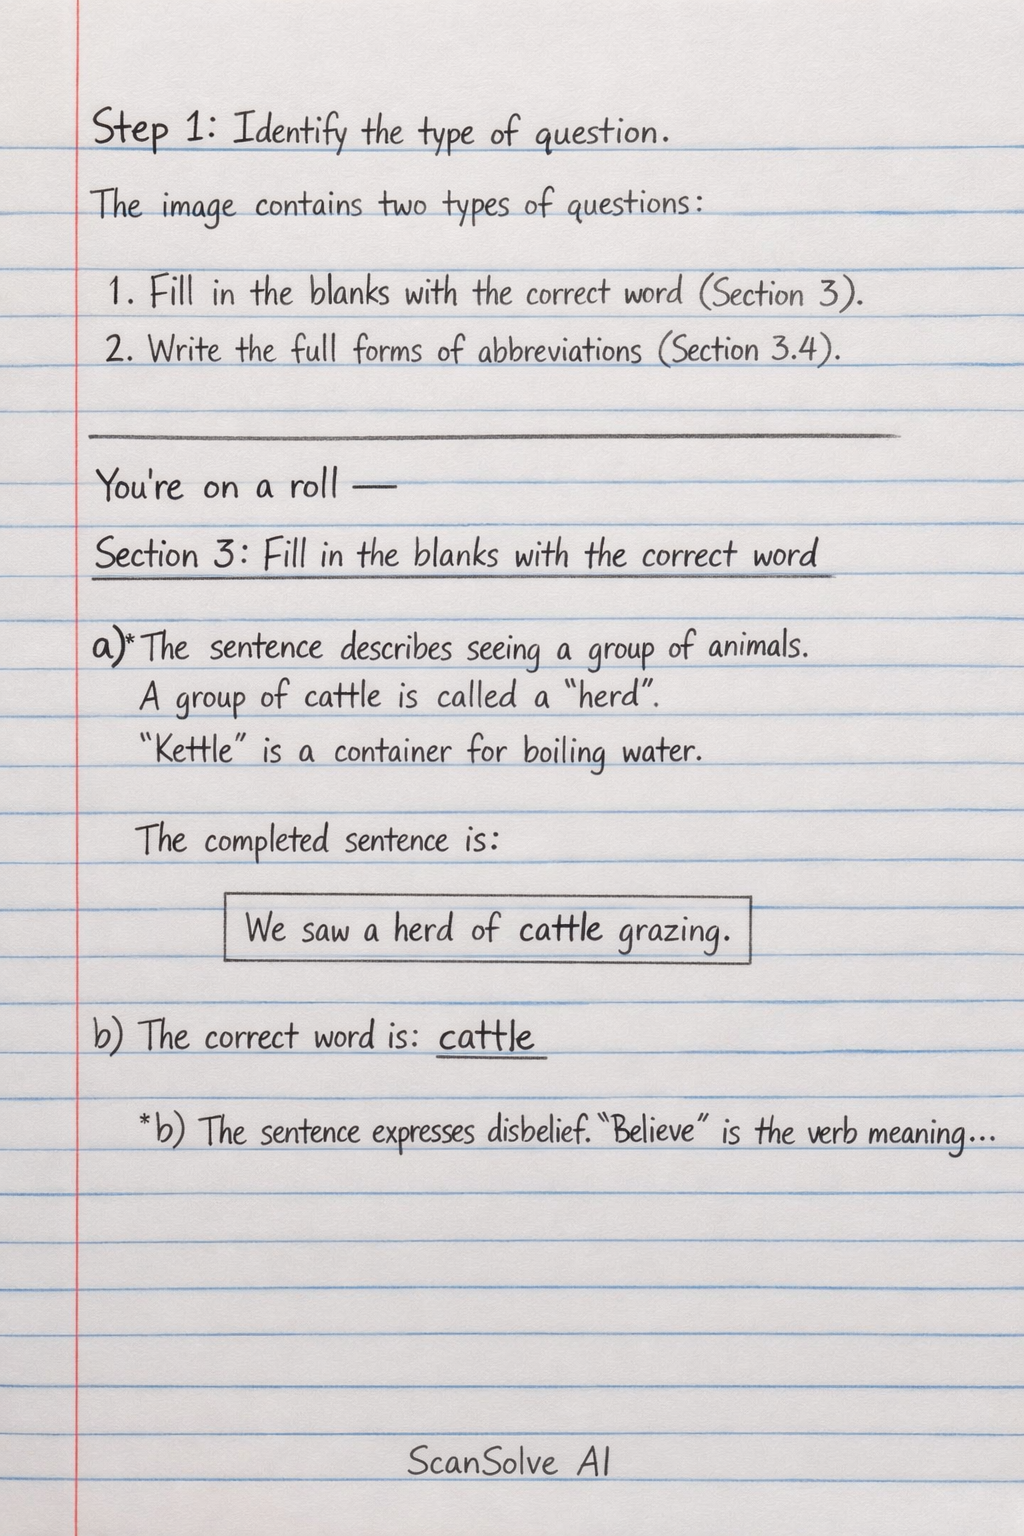 Step 1: Identify the type of question.
The image contains two types of questions:
1. Fill in the blanks with the correct word (Section 3).
2. Write the full forms of abbreviations (Section 3.4).
You're on a roll —
Section 3: Fill in the blanks with the correct word
a)* The sentence describes seeing a group of animals.
A group of cattle is called a "herd".
"Kettle" is a container for boiling water.
The completed sentence is:
We saw a herd of cattle grazing.
b) The correct word is: cattle
*b) The sentence expresses disbelief. "Believe" is the verb meaning...
ScanSolve AI